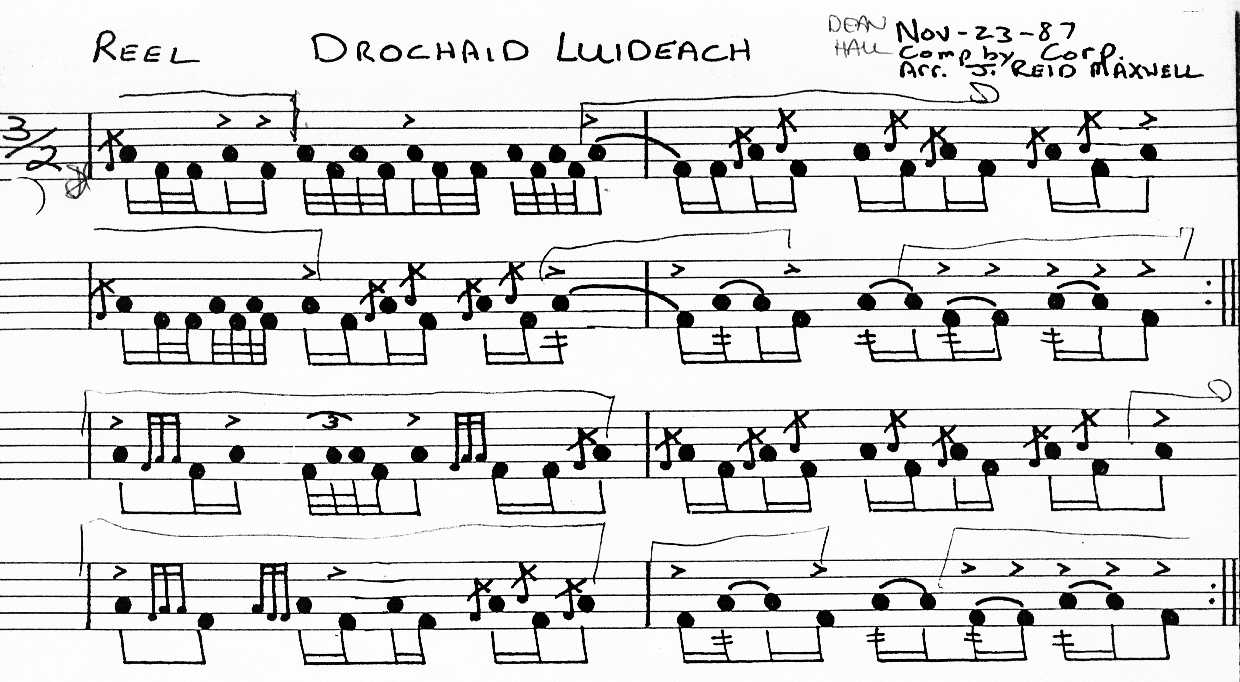 REEL DROCHAID LUIDEACH
DEAN HALL
Nov-23-87
Comp by Corp.
Arr. J. REID MAXWELL
3/2
3